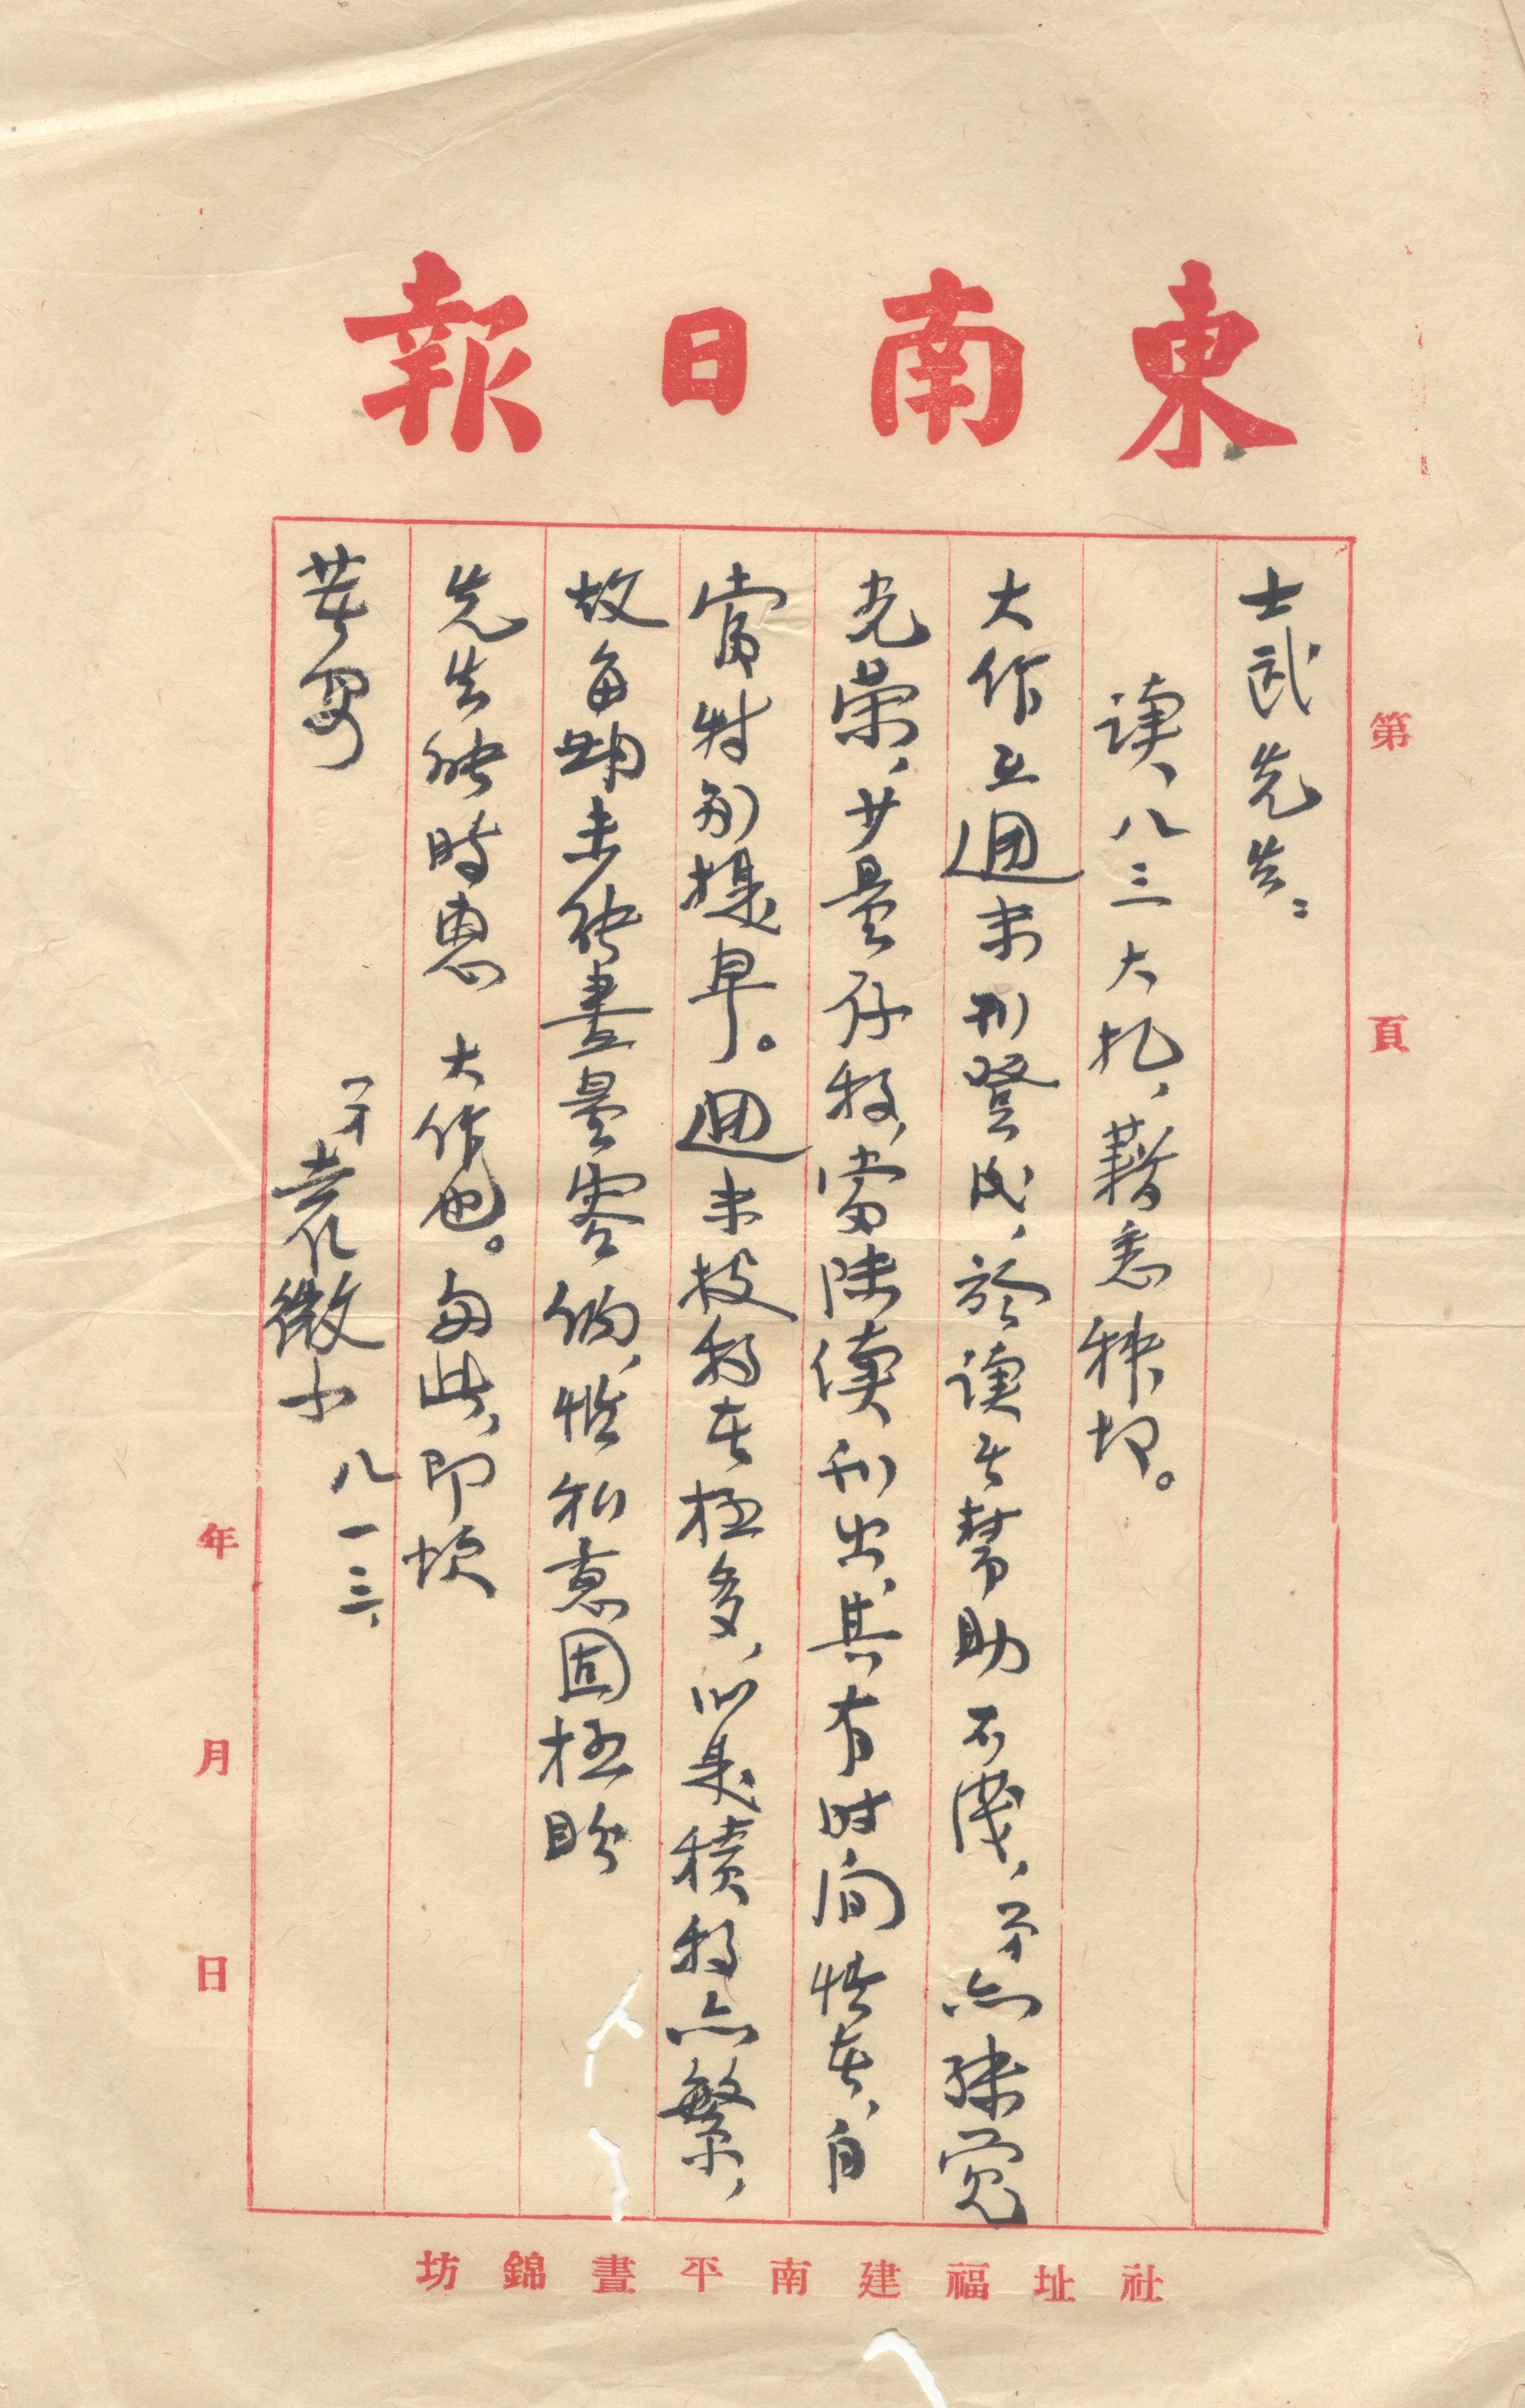 東南日報
第 頁
士武先生：
读八三大札，藉悉種切。
大作在週末刊登出，於读者幫助不淺，弟亦殊觉
光榮，廿量存稿，當陆續刊出，其有时间性者，自
當特別提早。週末投稿者極多，以是積稿亦繁，
故每期未能盡量容納，惟私意固極盼
先生能時惠 大作也。匆此，即頌
著安
弟袁微上 八一三、
年 月 日
社址福建南平晝錦坊